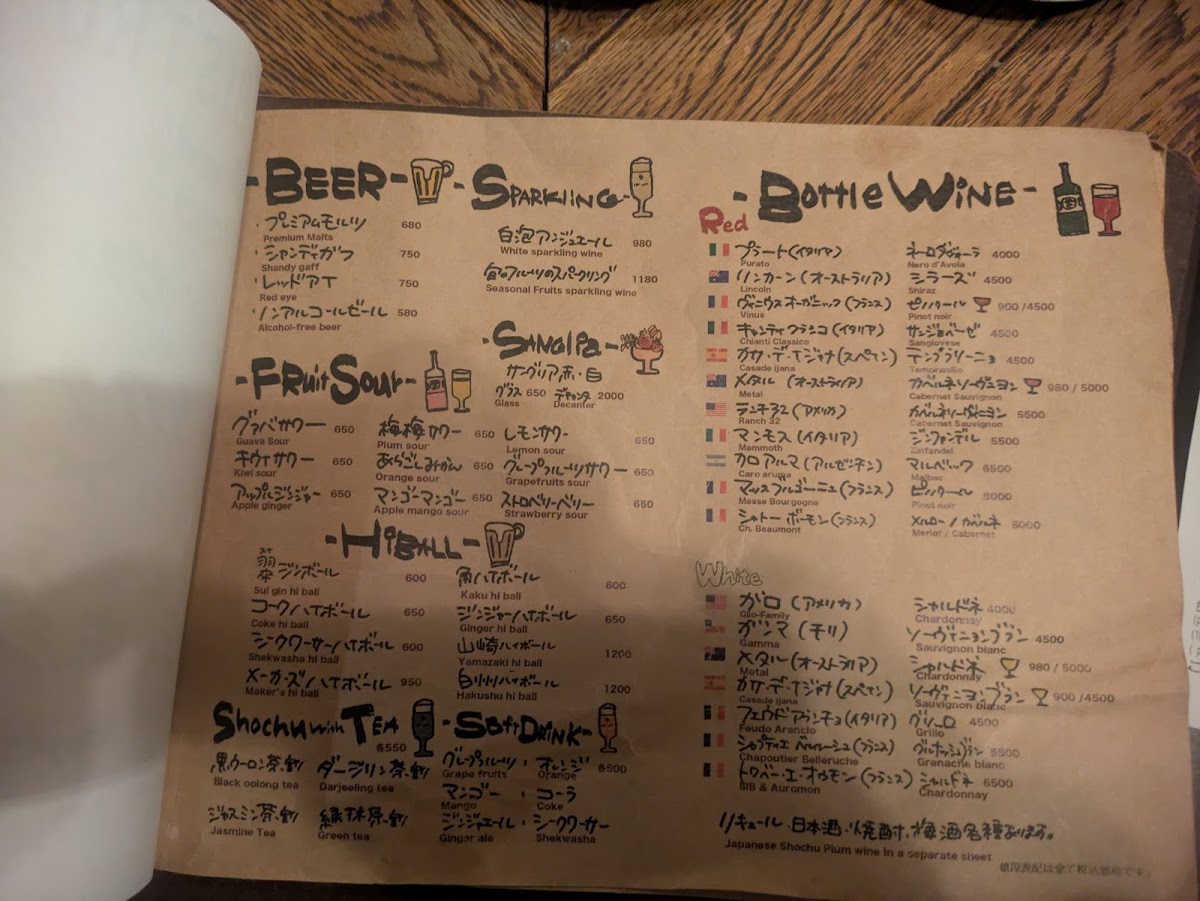 BEER
プレミアムモルツ 680
Premium Malts
シャンディガフ 750
Shandy gaff
レッドアイ 750
Red eye
ノンアルコールビール 580
Alcohol-free beer
SPARKLING
白泡アンジュエール 980
White sparkling wine
旬のフルーツのスパークリング 1180
Seasonal Fruits sparkling wine
SANGIRA
サングリア 赤・白
グラス 650 デキャンタ 2000
Glass Decanter
FRUIT SOUR
グァバサワー 650 梅梅サワー 650 レモンサワー 650
Guava Sour Plum sour Lemon sour
キウイサワー 650 あらごしみかん 650 グレープフルーツサワー 650
Kiwi sour Orange sour Grapefruits sour
アップルジンジャー 650 マンゴーマンゴー 650 ストロベリーベリー 650
Apple ginger Apple mango sour Strawberry sour
HIBALL
翠 スイ ジンボール 600 角ハイボール 600
Sui gin hi ball Kaku hi ball
コークハイボール 650 ジンジャーハイボール 650
Coke hi ball Ginger hi ball
シークワーサーハイボール 600 山崎ハイボール 1200
Shekwasha hi ball Yamazaki hi ball
メーカーズハイボール 950 白州ハイボール 1200
Maker's hi ball Hakushu hi ball
Shochu with TEA
各550
黒ウーロン茶割 ダージリン茶割
Black oolong tea Darjeeling tea
ジャスミン茶割 緑抹茶割
Jasmine Tea Green tea
SOFT DRINK
グレープフルーツ・オレンジ 各500
Grape fruits Orange
マンゴー・コーラ
Mango Coke
ジンジエール・シークワーサー
Ginger ale Shekwasha
BOTTLE WINE
Red
プラート(イタリア) ネーロダヴォーラ 4000
Purato Nero d'Avola
リンカーン(オーストラリア) シラーズ 4500
Lincoln Shiraz
ヴィニウスオーガニック(フランス) ピノノワール 900/4500
Vinus Pinot noir
キャンティクラシコ(イタリア) サンジョベーゼ 4500
Chianti Classico Sangiovese
カサ・デ・イジャナ(スペイン) テンプラリーニョ 4500
Casade ijana Tempranillo
メタル(オーストラリア) カベルネソーヴィニヨン 980/5000
Metal Cabernet Sauvignon
ランチ32(アメリカ) カベルネソーヴィニヨン 5500
Ranch 32 Cabernet Sauvignon
マンモス(イタリア) ジンファンデル 5500
Mammoth Zinfandel
カロアルマ(アルゼンチン) マルベック 6500
Caro aruma Malbec
マッスブルゴーニュ(フランス) ピノノワール
Masse Bourgogne Pinot noir
シャトーボーモン(フランス) メルロー/カベルネ
Ch. Beaumont Merlot / Cabernet
White
ガロ(アメリカ) シャルドネ 4000
Gllo-Family Chardonnay
ガンマ(チリ) ソーヴィニヨンブラン 4500
Gamma Sauvignon blanc
メタル(オーストラリア) シャルドネ 980/5000
Metal Chardonnay
カサ・デ・イジャナ(スペイン) ソーヴィニヨンブラン 900/4500
Casade ijana Sauvignon blanc
フェウドアランチョ(イタリア) グリーロ 4500
Feudo Arancio Grillo
シャプティエ ベルルーシュ(フランス) グルナッシュブラン 5500
Chapoutier Belleruche Grenache blanc
トロベー・エ・オウモン(フランス) シャルドネ 6500
BIB & Auromon Chardonnay
リキュール・日本酒・焼酎・梅酒各種あります。
Japanese Shochu Plum wine in a separate sheet
値段表記は全て税込価格です。